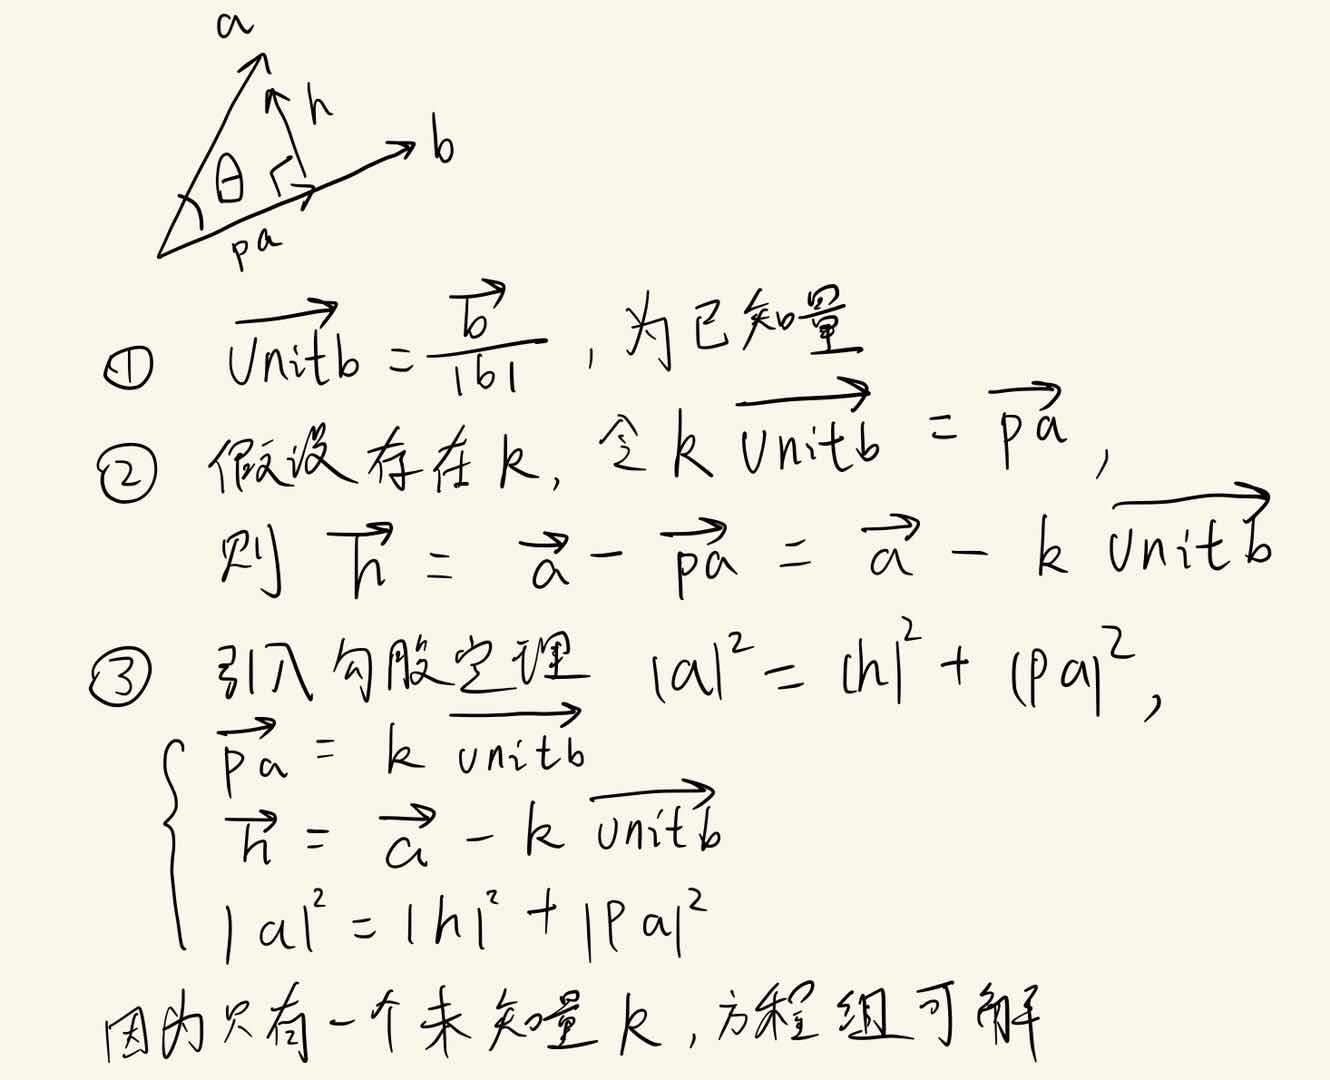 a
h
b
θ
pa
① Unitb = b / |b| , 为已知量
② 假设存在k, 令 k Unitb = pa ,
则 h = a - pa = a - k Unitb
③ 引入勾股定理 |a|² = |h|² + |pa|² ,
pa = k unitb
h = a - k unitb
|a|² = |h|² + |Pa|²
因为只有一个未知量k, 方程组可解